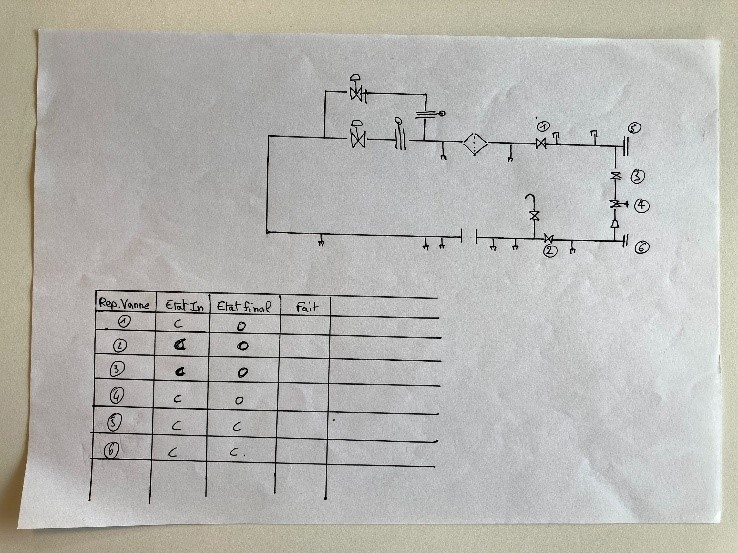 ①
⑤
③
④
②
⑥
Rep. Vanne Etat In Etat final Fait
① C O
② C O
③ C O
④ C O
⑤ C C
⑥ C C.